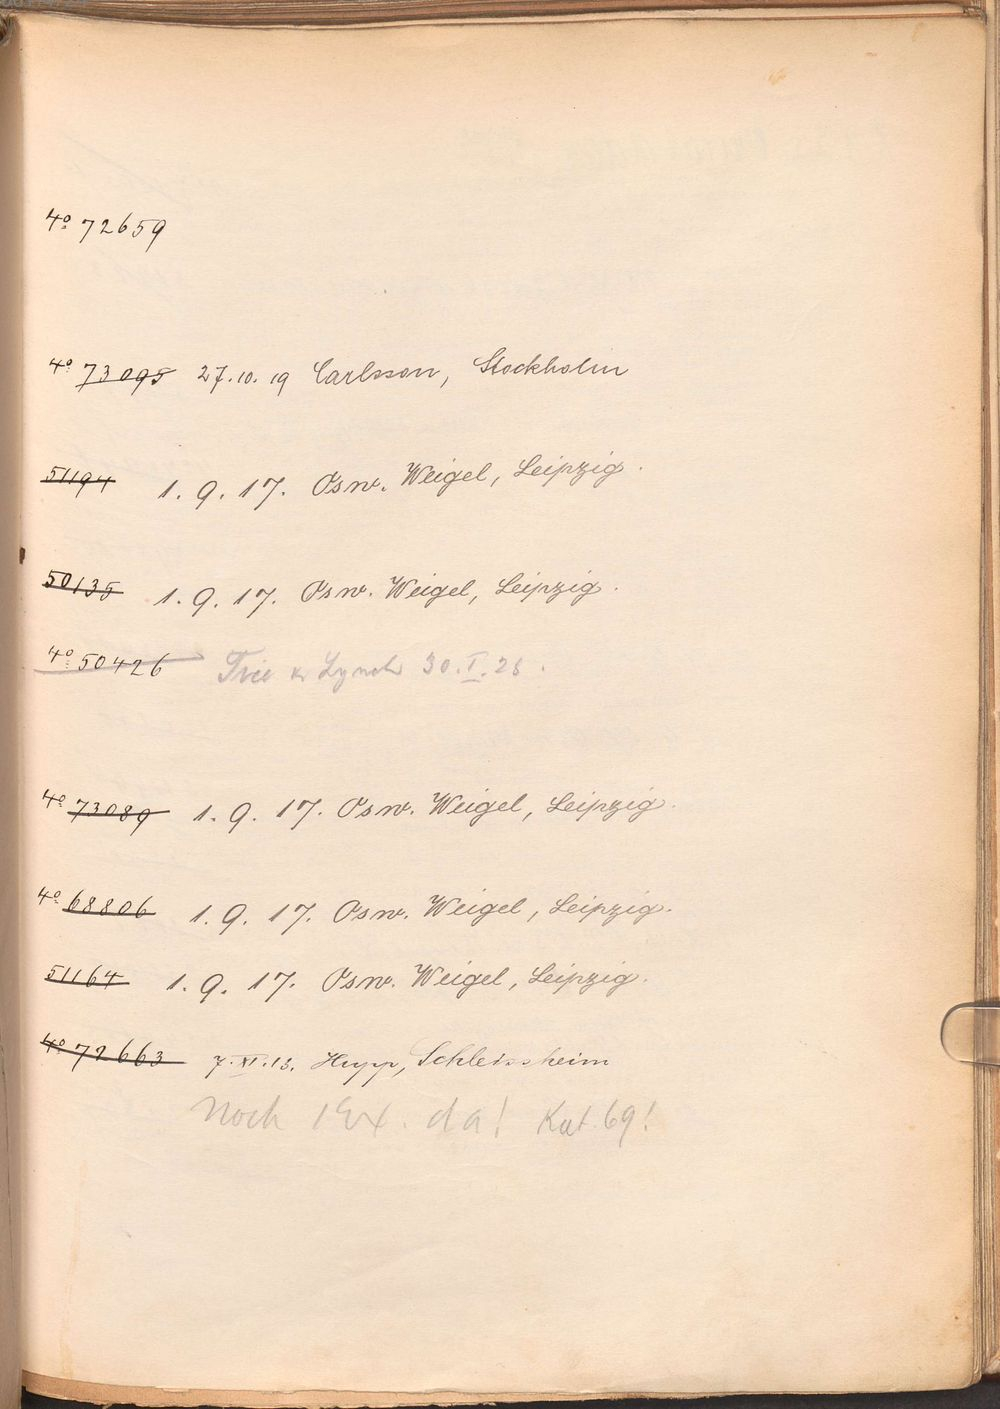 4º 72659
4º 73095 27.10.19 Carlsson, Stockholm
51194 1.9.17. Osw. Weigel, Leipzig.
50135 1.9.17. Osw. Weigel, Leipzig.
4º 50426 Lynch 30.I.28.
4º 73089 1.9.17. Osw. Weigel, Leipzig.
4º 68806 1.9.17. Osw. Weigel, Leipzig.
51164 1.9.17. Osw. Weigel, Leipzig.
4º 72663 7.XI.13. Hupp, Schleissheim
Noch 1 Ex. da! Kat. 69!